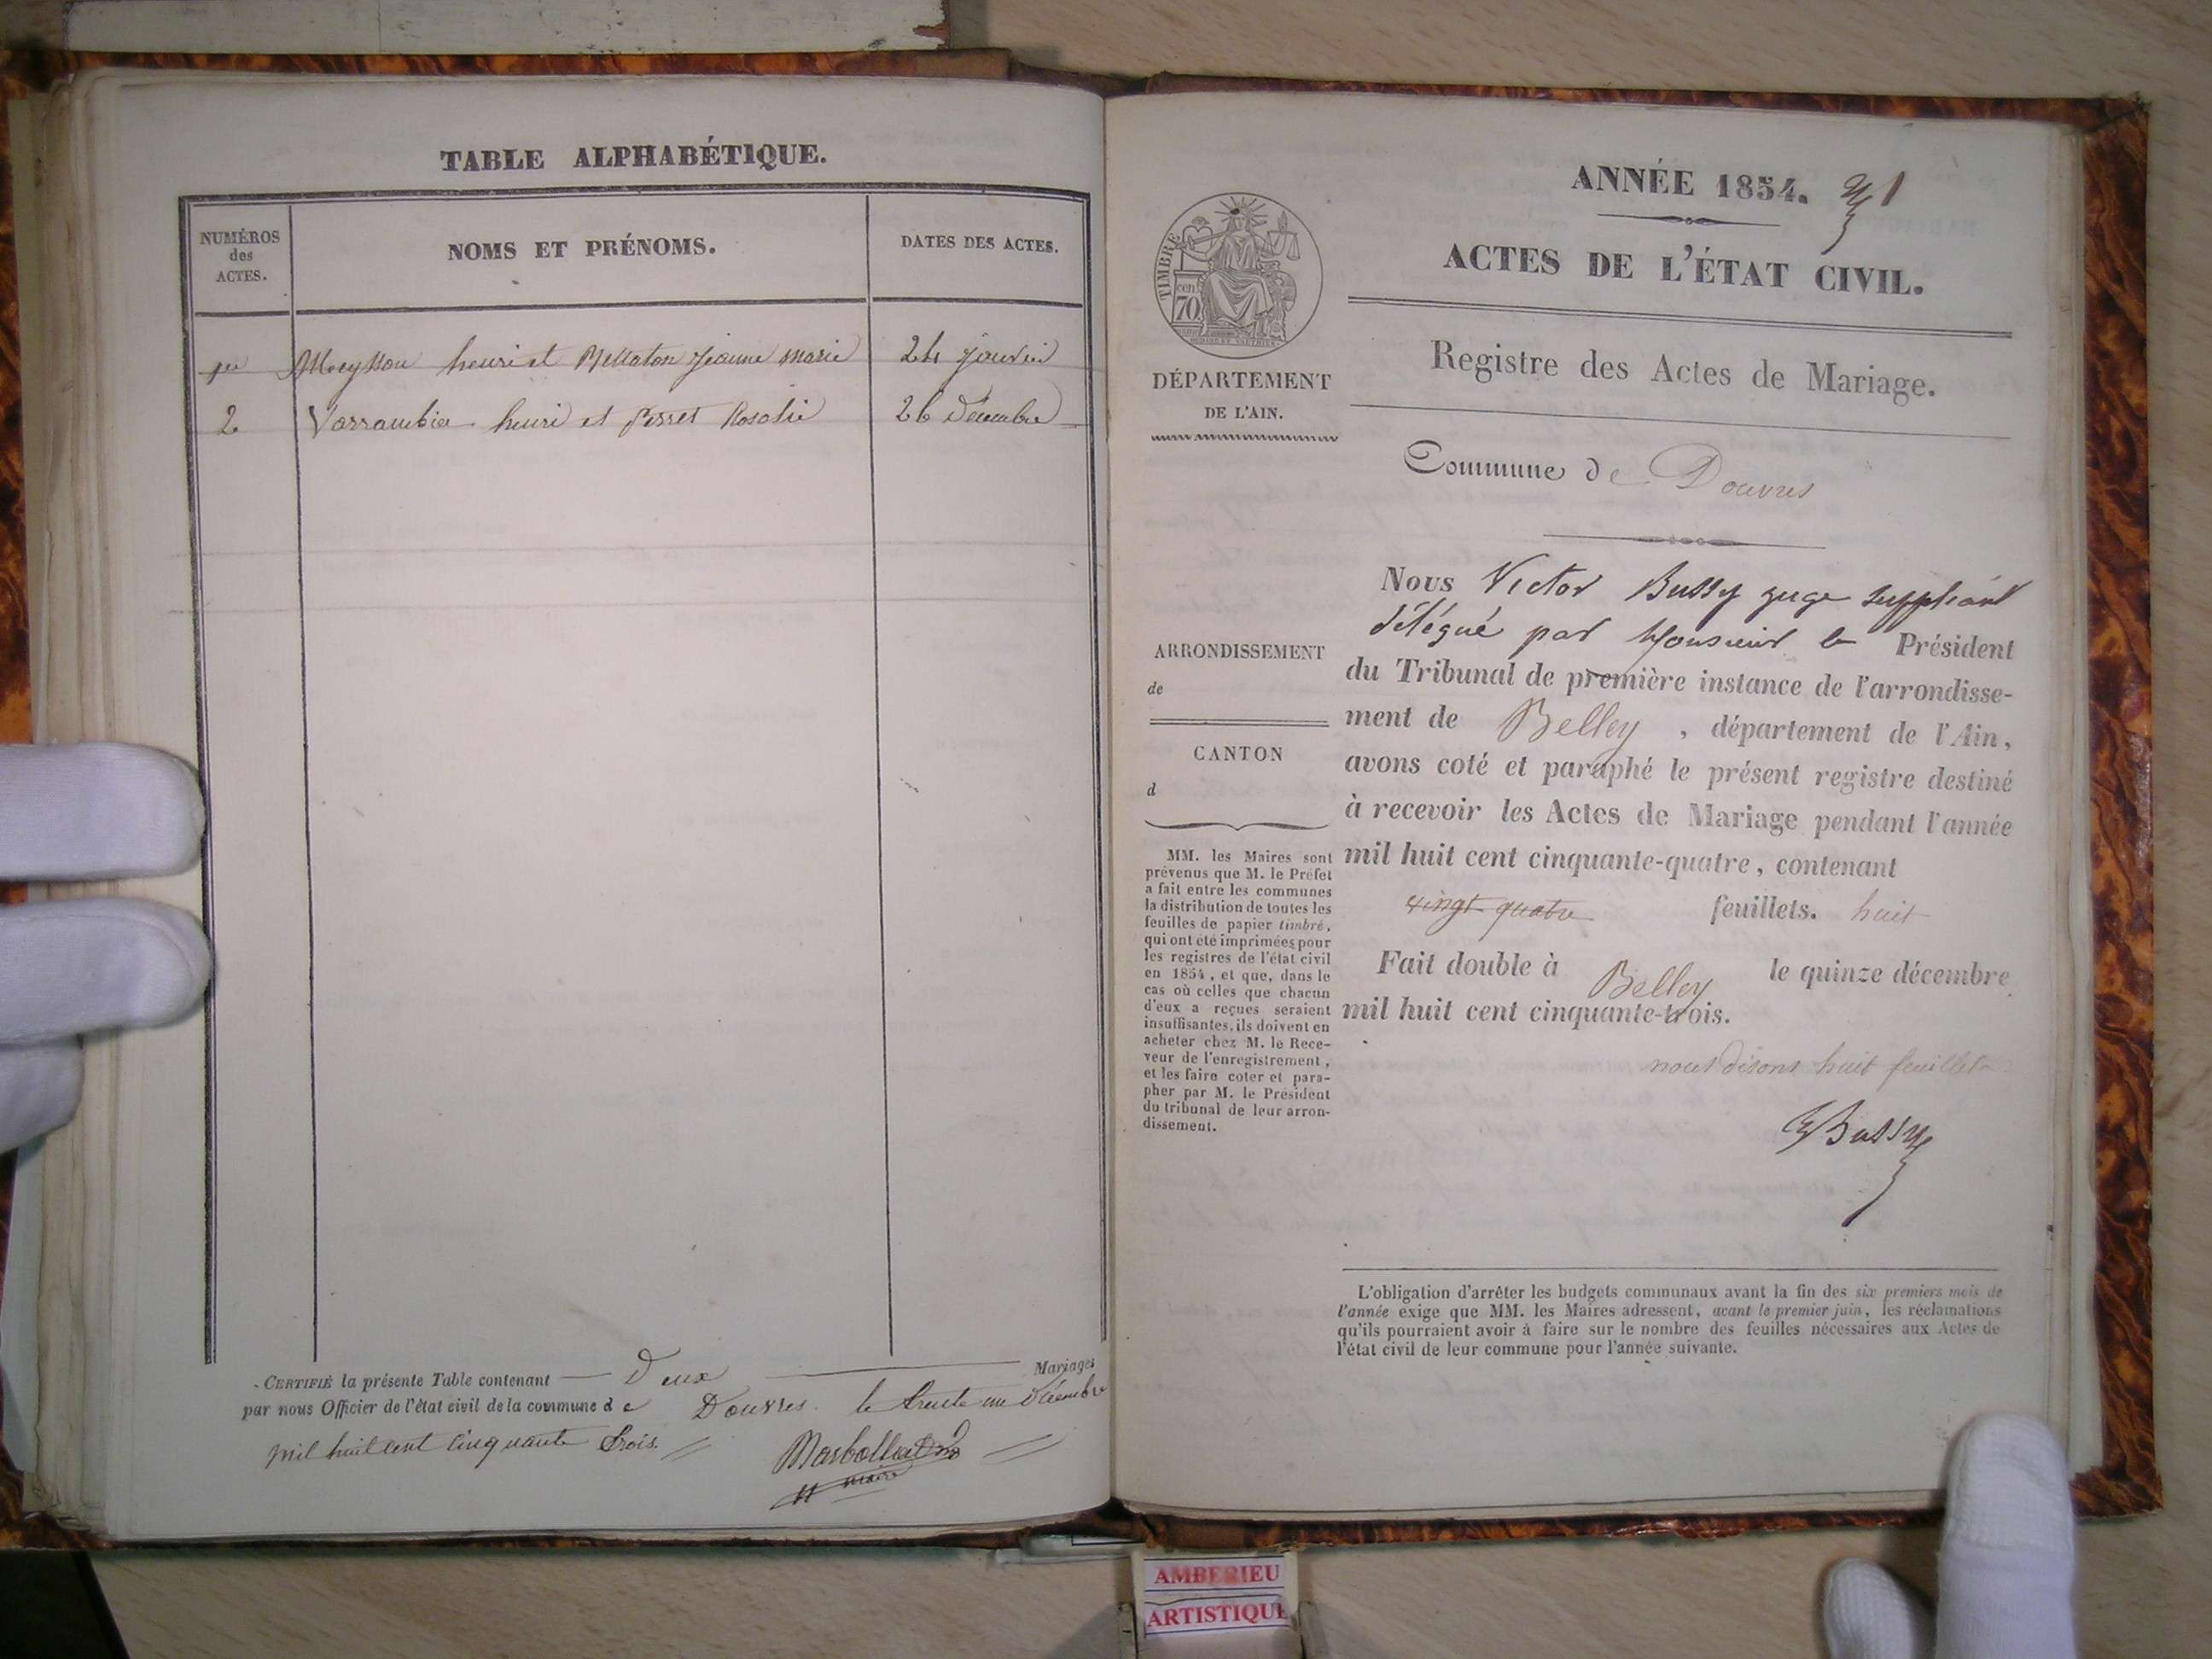 TABLE ALPHABÉTIQUE.
NUMÉROS
des
ACTES.
NOMS ET PRÉNOMS.
DATES DES ACTES.
1er henri et Jeanne marie 24 janvier
2 Varrambier henri et Perret Rosalie 26 Décembre
CERTIFIÉ la présente Table contenant Deux Mariages
par nous Officier de l'état civil de la commune de Douvres le trente un Décembre
mil huit cent cinquante trois.
maire
ANNÉE 1854. 1
ACTES DE L'ÉTAT CIVIL.
Registre des Actes de Mariage.
TIMBRE
70 cen
DÉPARTEMENT
DE L'AIN.
Commune de Douvres
ARRONDISSEMENT
de
CANTON
d
MM. les Maires sont
prévenus que M. le Préfet
a fait entre les communes
la distribution de toutes les
feuilles de papier timbré,
qui ont été imprimées pour
les registres de l'état civil
en 1854, et que, dans le
cas où celles que chacun
d'eux a reçues seraient
insuffisantes, ils doivent en
acheter chez M. le Rece-
veur de l'enregistrement,
et les faire coter et para-
pher par M. le Président
du tribunal de leur arron-
dissement.
Nous Victor Bussy juge suppléant
délégué par Monsieur le Président
du Tribunal de première instance de l'arrondisse-
ment de Belley, département de l'Ain,
avons coté et paraphé le présent registre destiné
à recevoir les Actes de Mariage pendant l'année
mil huit cent cinquante-quatre, contenant
vingt quatre feuillets. huit
Fait double à Belley le quinze décembre
mil huit cent cinquante-trois.
nous disons huit feuillets
Bussy
L'obligation d'arrêter les budgets communaux avant la fin des six premiers mois de
l'année exige que MM. les Maires adressent, avant le premier juin, les réclamations
qu'ils pourraient avoir à faire sur le nombre des feuilles nécessaires aux Actes de
l'état civil de leur commune pour l'année suivante.
AMBERIEU
ARTISTIQUE